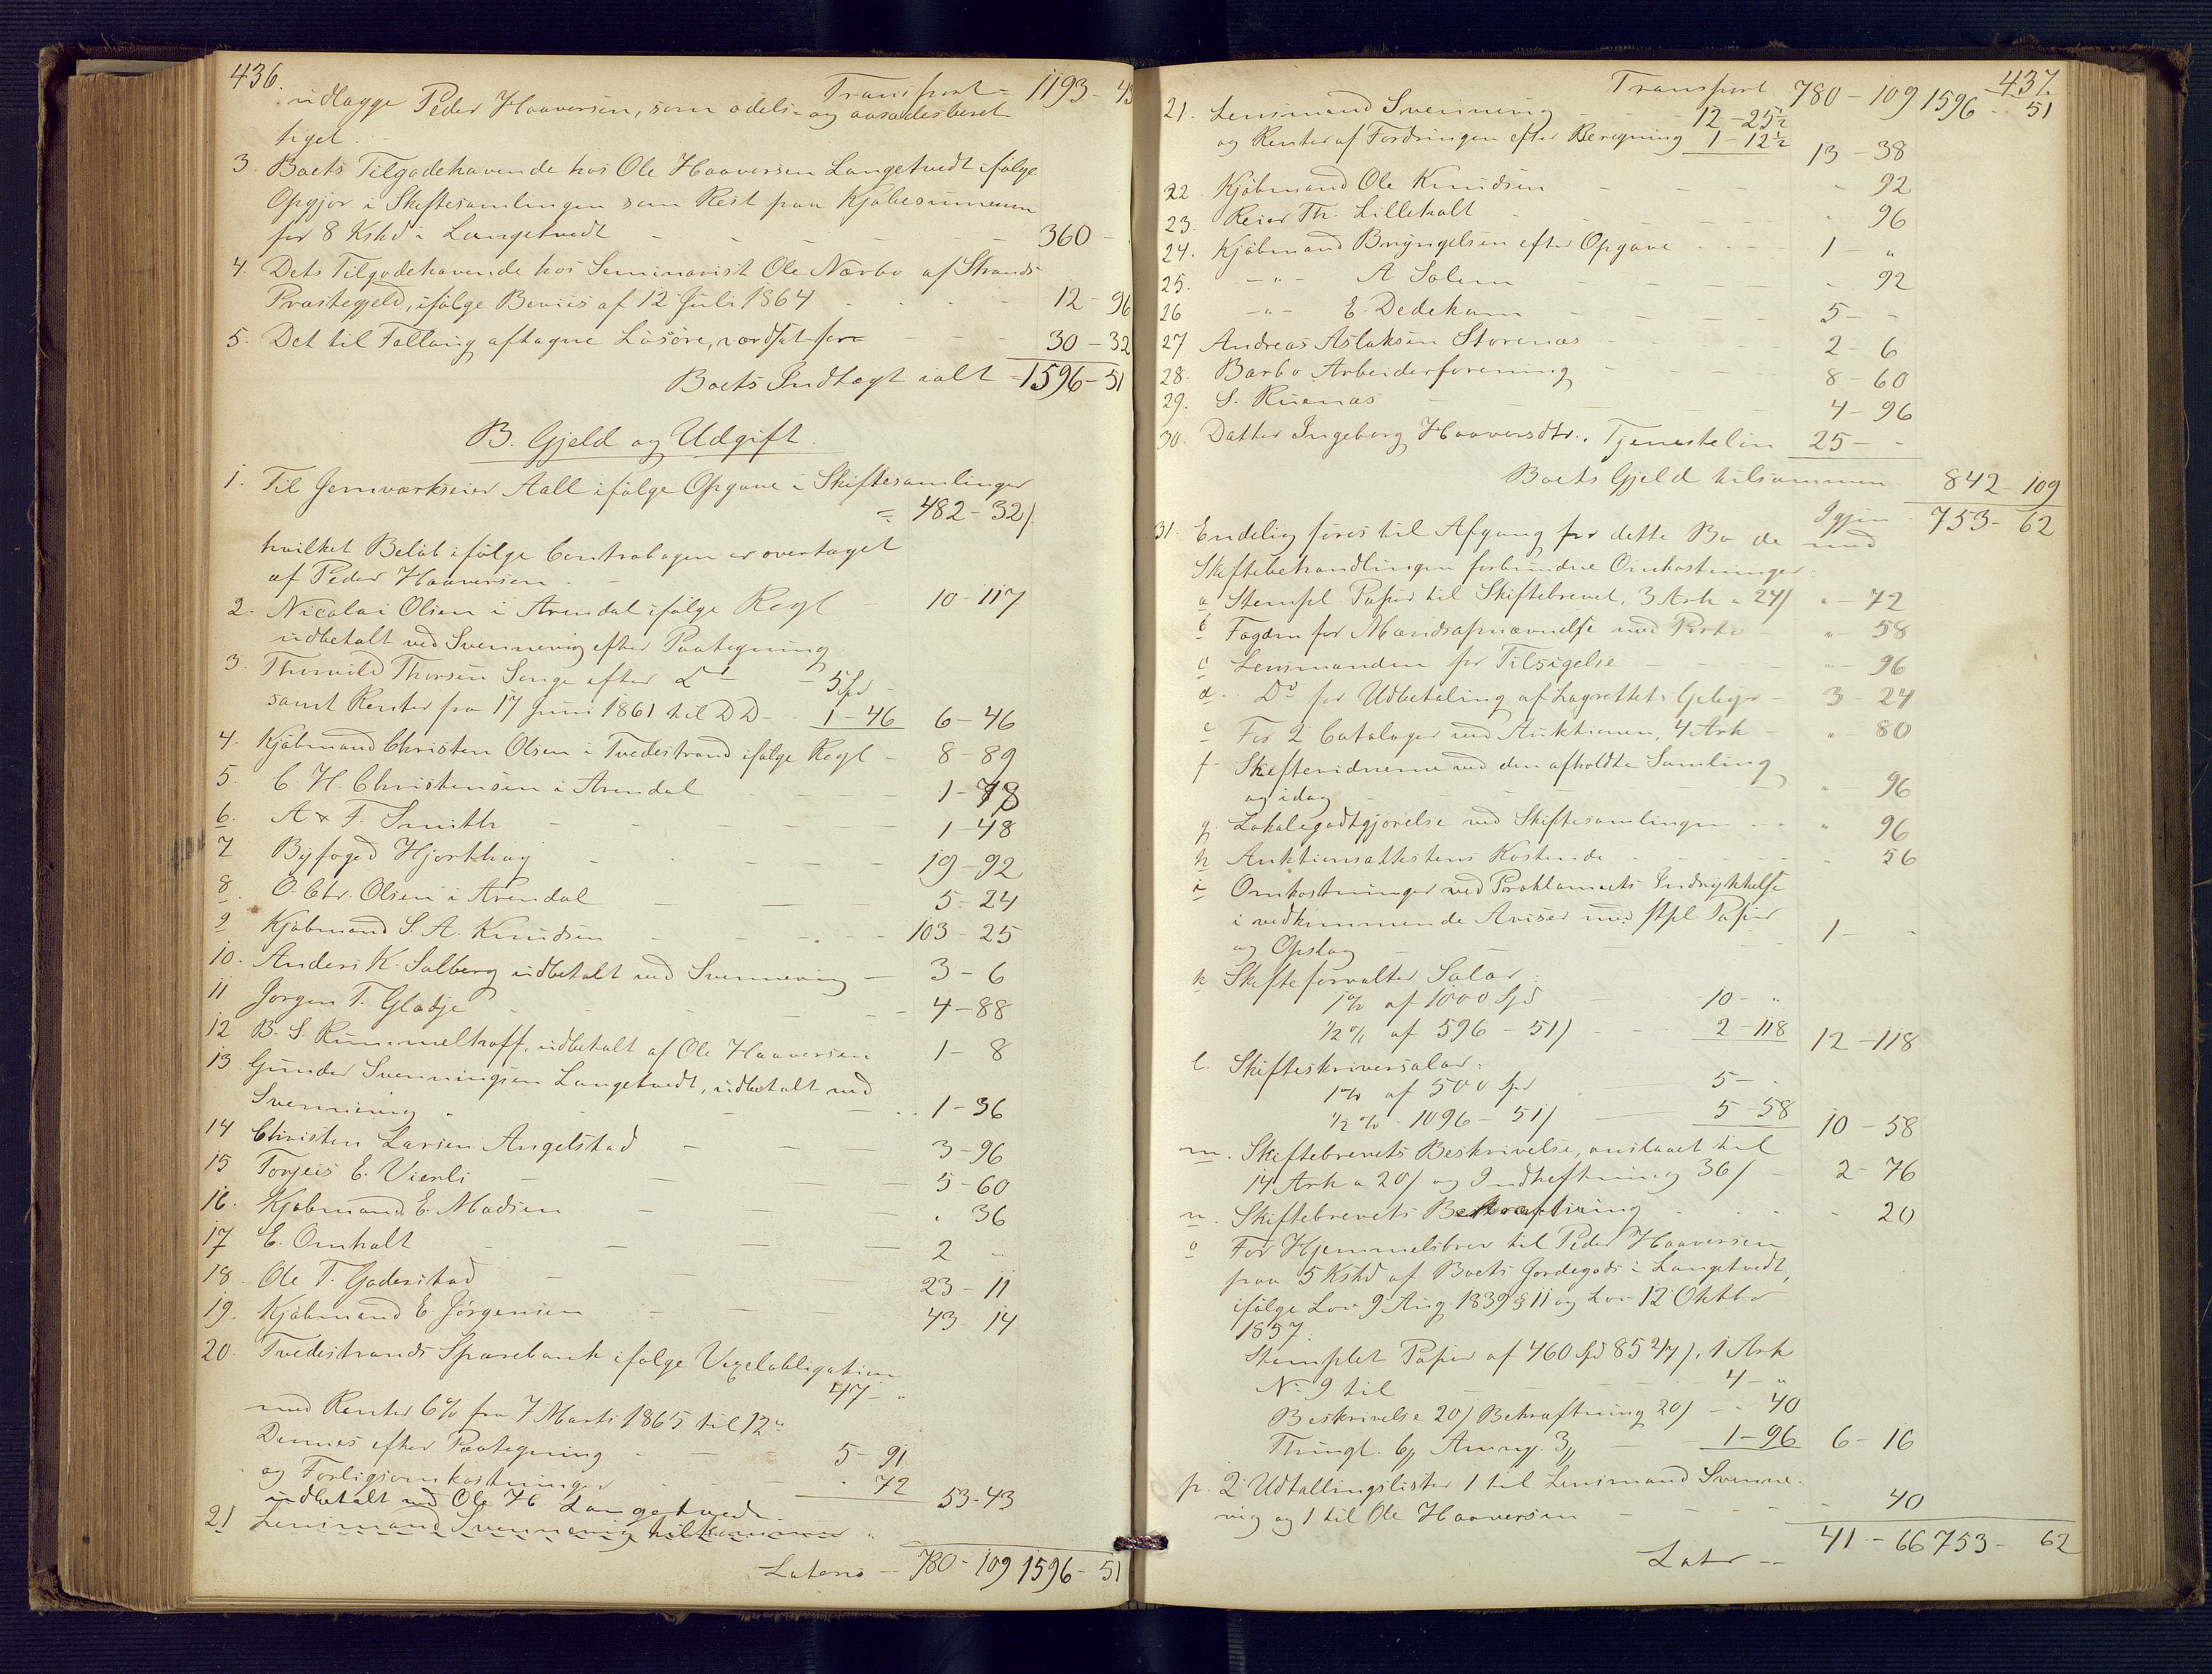 436.
Transport = 1193 - 43
udlagge Peder Haaversen, som odels- og aasædesberet
tiget.
3. Boets Tilgodehavende hos Ole Haaversen Langetvedt ifølge
Opgjør i Skiftesamlingen som Rest paa Kjøbesummen
for 8 Kskd i Langetvedt - - - - 360 -
4. Dets Tilgodehavende hos Seminarist Ole Nærbo af Strands
Præstegjeld, ifølge Beviis af 12 Juli 1864 - - - 12 - 96
5. Det til Fallaug aftagne Løsøre, værdsat for - - - 30 - 32
Boets Indtægt ialt - 1596 - 51
B. Gjeld og Udgift.
1. Til Jernværkseier Aall ifølge Opgave i Skiftesamlinger
= 482 - 32/.
hvilket Beløb ifølge Contrabogen er overtaget
af Peder Haaversen -
2. Nicolai Olsen i Arendal ifølge Regl - 10 - 117
udbetalt ved Svennevig efter Paategning
3. Thorvild Thorsen Songe efter - 5 Spd -
samt Renter fra 17 Juni 1861 til D D - 1 - 46 6 - 46
4. Kjøbmand Christen Olsen i Tvedestrand ifølge Regl - 8 - 89
5. C. H. Christensen i Arendal - - - 1 - 78
6. A & F. Smith - - - 1 - 48
7 Byfoged Hjorthøy - - - 19 - 92
8. O. Chr. Olsen i Arendal - - - 5 - 24
9 Kjøbmand S. A. Knudsen - - - 103 - 25
10. Anders K. Solberg udbetalt ved Svennevig - 3 - 6
11 Jørgen T. Gladje - - - 4 - 88
12 B. S. Rummelhoff, udbetalt af Ole Haaversen 1 - 8
13. Gunder Svenningsen Langetvedt, udbetalt ved
Svennevig - - - 1 - 36
14 Christen Larsen Angelstad - - - 3 - 96
15 Torjeis E. Vierli - - - 5 - 60
16. Kjøbmand E. Madsen - - - " 36
17 E. Omholt - - - 2 -
18 - Ole T. Goderstad - - 23 - 11
19. Kjøbmand E. Jørgensen - - 43 - 14
20. Tvedestrands Sparebank ifølge Vexelobligation
47 - "
med Renter 6% fra 7 Marts 1865 til 12te
Dennes efter Paategning - - 5 - 91
og Forligsomkostninger - - - 72
udbetalt ved Ole H. Langetvedt. 53 - 43
21 Lensmand Svennevig tilkommer
Lateris -- 780 - 109 1596 - 51
437.
Transport 780 - 109 1596 - 51
21. Lensmand Svennevig - 12 - 25½
og Renter af Fordringen efter Beregning 1 - 12½ 13 - 38
22. Kjøbmand Ole Knudsen - - - 92
23. Reier Th. Lilleholt - - - 96
24. Kjøbmand Bryngelsen efter Opgave - - - 1 - "
25. - " - A Solem - - - 92
26 - " - E. Dedekam - - - 5 - -
27 Andreas Aslaksen Storenæs - - - 2 - 6
28. Barbo Arbeiderforening - - - 8 - 60
29. S. Ruenæs - - - 4 - 96
30. Datter Ingeborg Haaversdtr. Tjenesteløn 25 - -
Boets Gjeld tilsammen 842 - 109
Igjen 753 - 62
31. Endelig føres til Afgang for dette Bo de med
Skiftebehandlingen forbundne Omkostninger:
a Stempl. Papir til Skiftebrevet, 3 Ark a 24/ " - 72
b Fogden for Mandsopnævnelse med Porto - " - 58
c Lensmanden for Tilsigelse - - " - 96
d. Do for Udbetaling af Lagrettets Gebyr - 3 - 24
e For 2 Cataloger ved Auktionen, 4 Ark - " - 80
f. Skiftevidnerne ved den afholdte Samling
og idag - - - " - 96
g. Lokalegodtgjørelse ved Skiftesamlingen - - " 96
h Auktionsattestens Kostende - - - 56
i Omkostninger ved Proklamaets Indrykkelse
i vedkommende Aviser med stpl. Papir
og Opslag - - - 1 - -
k Skifteforvalter Salær:
1% af 1000 Spd - 10 - "
½% af 596 - 51/ - - 2 - 118 12 - 118
l. Skifteskriversalær:
1% af 500 Spd - 5 - -
½% - 1096 - 51/ - 5 - 58 10 - 58
m. Skiftebrevets Beskrivelse, anslaaet til
14 Ark a 20/ og Indheftning 36/ - 2 - 76
n. Skiftebrevets Bekræftning - - - 20
o For Hjemmelsbrev til Peder Haaversen
paa 5 Kskd af Boets Jordegods i Langetvedt,
ifølge Lov 9 Aug. 1839 § 11 og Lov 12 Oktbr
1857:
Stemplet Papir af 460 Spd 85 2/4/, 1 Ark
No 9 til - - - 4 - "
Beskrivelse 20/ Bekræftning 20/ - - 40
Thingl. 6/, 3/ - 1 - 96 6 - 16
p. 2 Udtallingslister 1 til Lensmand Svenne-
vig og 1 til Ole Haaversen - - - 40
Later -- 41 - 66 753 - 62